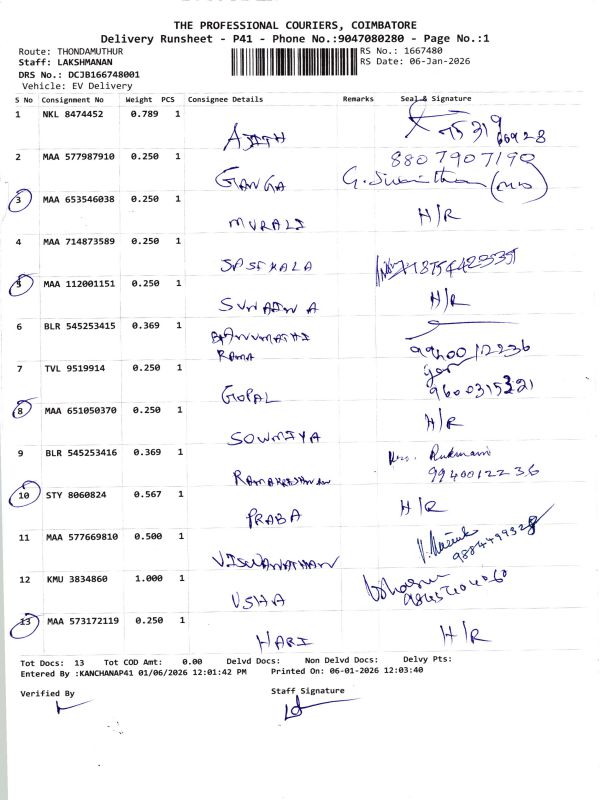 THE PROFESSIONAL COURIERS, COIMBATORE
Delivery Runsheet - P41 - Phone No.:9047080280 - Page No.:1
Route: THONDAMUTHUR
RS No.: 1667480
Staff: LAKSHMANAN
RS Date: 06-Jan-2026
DRS No.: DCJB166748001
Vehicle: EV Delivery
S No Consignment No Weight PCS Consignee Details Remarks Seal & Signature
1 NKL 8474452 0.789 1
AJITH
2 MAA 577987910 0.250 1 8807907190
GANGA
3 MAA 653546038 0.250 1
MURALI H/R
4 MAA 714873589 0.250 1
5 MAA 112001151 0.250 1
H/R
6 BLR 545253415 0.369 1
BANUMATHI
RAMA
9940012236
7 TVL 9519914 0.250 1
GOPAL 9600315321
8 MAA 651050370 0.250 1
SOWMIYA H/R
9 BLR 545253416 0.369 1 Rukmani
RAMAKRISHNAN 9940012236
10 STY 8060824 0.567 1
PRABA H/R
11 MAA 577669810 0.500 1
VISWANATHAN
12 KMU 3834860 1.000 1
USHA
13 MAA 573172119 0.250 1
HARI H/R
Tot Docs: 13 Tot COD Amt: 0.00 Delvd Docs: Non Delvd Docs: Delvy Pts:
Entered By :KANCHANAP41 01/06/2026 12:01:42 PM Printed On: 06-01-2026 12:03:40
Verified By Staff Signature